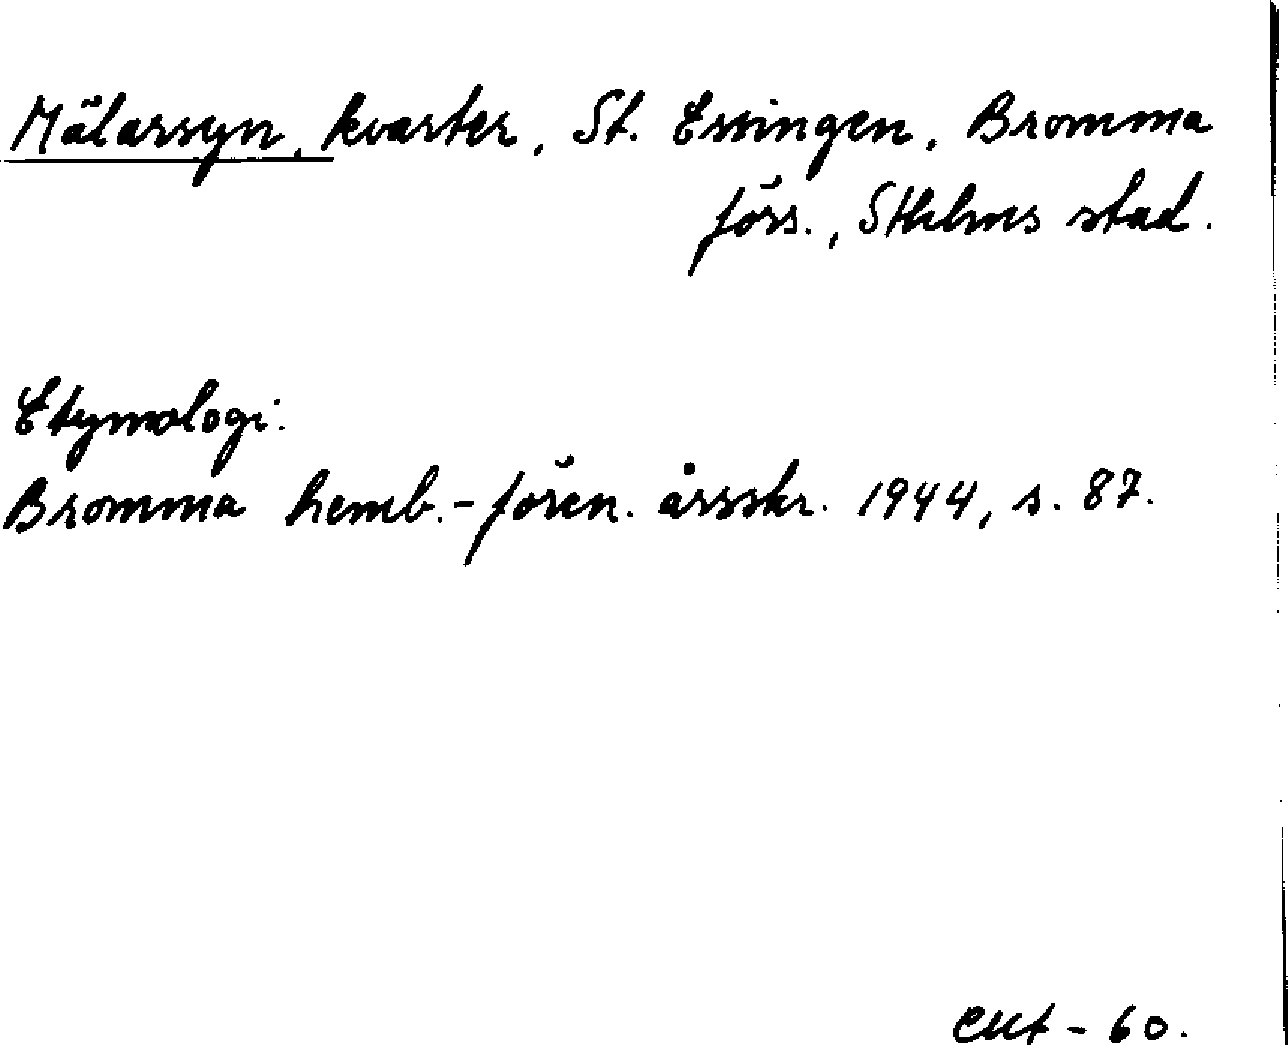 Mälarsyn, kvarter, St. Essingen, Bromma
förs., Sthlms stad.
Etymologi:
Bromma hemb.-fören. årsskr. 1944, s. 87.
- 60.